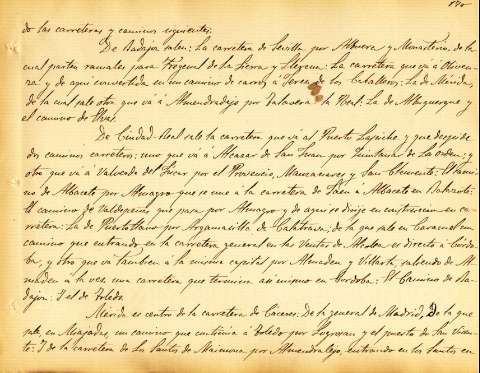 do las carreteras y caminos siguientes:
De Badajoz salen: La carretera de Sevilla por Albuera y Monasterio, de la
cual parten ramales para Fregenal de la Sierra y Llerena: La carretera que va á Oliven-
za y de aqui convertida en un camino de carros á Jerez de los Caballeros: La de Mérida,
de la cual sale otra que vá á Almendralejo por Talavera la Real: La de Alburquerque y
el camino de Elvas.
De Ciudad-Real sale la carretera que vá al Puerto Lapiche y que despide
dos caminos carreteros; uno que vá á Alcazar de San Juan por Quintanar de la Orden; y
otro que vá á Valverde del Jucar por el Provencio, Manzanares y San Clemente: El cami-
no de Albacete por Almagro que se une á la carretera de Jaen á Albacete en Balazote:
El camino de Valdepeñas que pasa por Almagro y de aqui se dirije en construccion en ca-
rretera: La de Puertollano por Argamasilla de Calatrava; de la que sale en Caracuel un
camino que entrando en la carretera general en las Ventas de Alcolea es directo á Cordo-
ba, y otro que vá tambien á la misma capital por Almaden y Villarta, saliendo de Al-
maden á la vez una carretera que termina asi mismo en Cordoba: El Camino de Ba-
dajoz: Y el de Toledo
Mérida es centro de la carretera de Cáceres: De la general de Madrid, de la que
sale en Miajadas un camino que continúa á Toledo por Logrosan y el puerto de San Vicen-
te: Y de la carretera de Los Santos de Maimona por Almendralejo, entrando en los Santos en